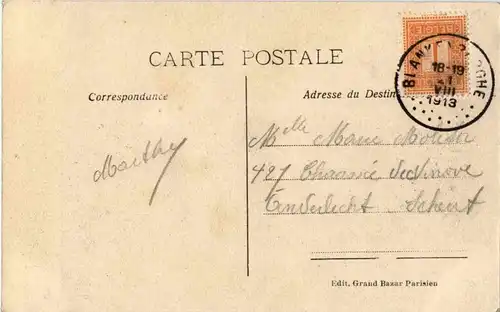 CARTE POSTALE
Correspondance
Adresse du Destin
BLANKENBERGHE
18-19
1
VIII
1913
Marthe
Mlle Marie
427 Chaussée de Ninove
Anderlecht Scheut
Edit. Grand Bazar Parisien